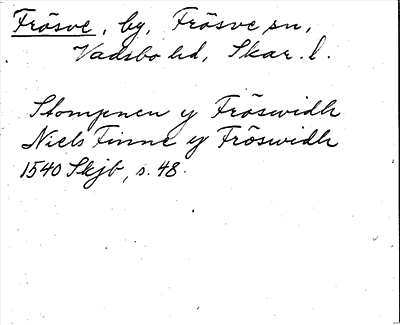 Frösve, by, Frösve sn,
Vadsbo hd, Skar. l.
Stompenen y Fröswidh
Niels Finne y Fröswidh
1540 Skjb, s. 48.